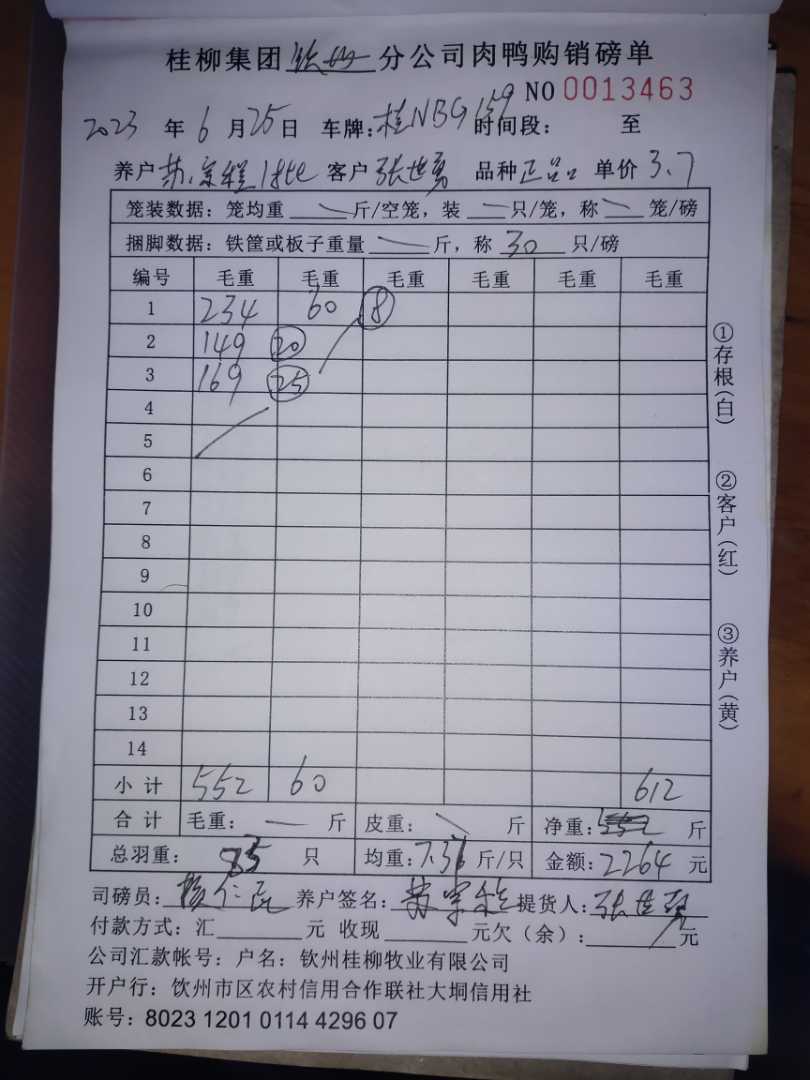 桂柳集团钦州分公司肉鸭购销磅单
NO 0013463
2023 年 6 月 25 日 车牌：桂NBG159 时间段： 至
养户 苏宗程 客户 张世勇 品种 正品 单价 3.7
笼装数据：笼均重 斤/空笼，装 只/笼，称 笼/磅
捆脚数据：铁筐或板子重量 斤，称 30 只/磅
编号 毛重 毛重 毛重 毛重 毛重 毛重
1 234 60 8
2 149 20
3 169 25
4
5
6
7
8
9
10
11
12
13
14
小计 552 60 612
合计 毛重： 斤 皮重： 斤 净重： 斤
总羽重： 85 只 均重：7.36 斤/只 金额：2264 元
司磅员： 养户签名：苏宗程 提货人：张世勇
付款方式：汇 元 收现 元欠（余）： 元
公司汇款帐号：户名：钦州桂柳牧业有限公司
开户行：钦州市区农村信用合作联社大垌信用社
账号：8023 1201 0114 4296 07
①存根（白）
②客户（红）
③养户（黄）